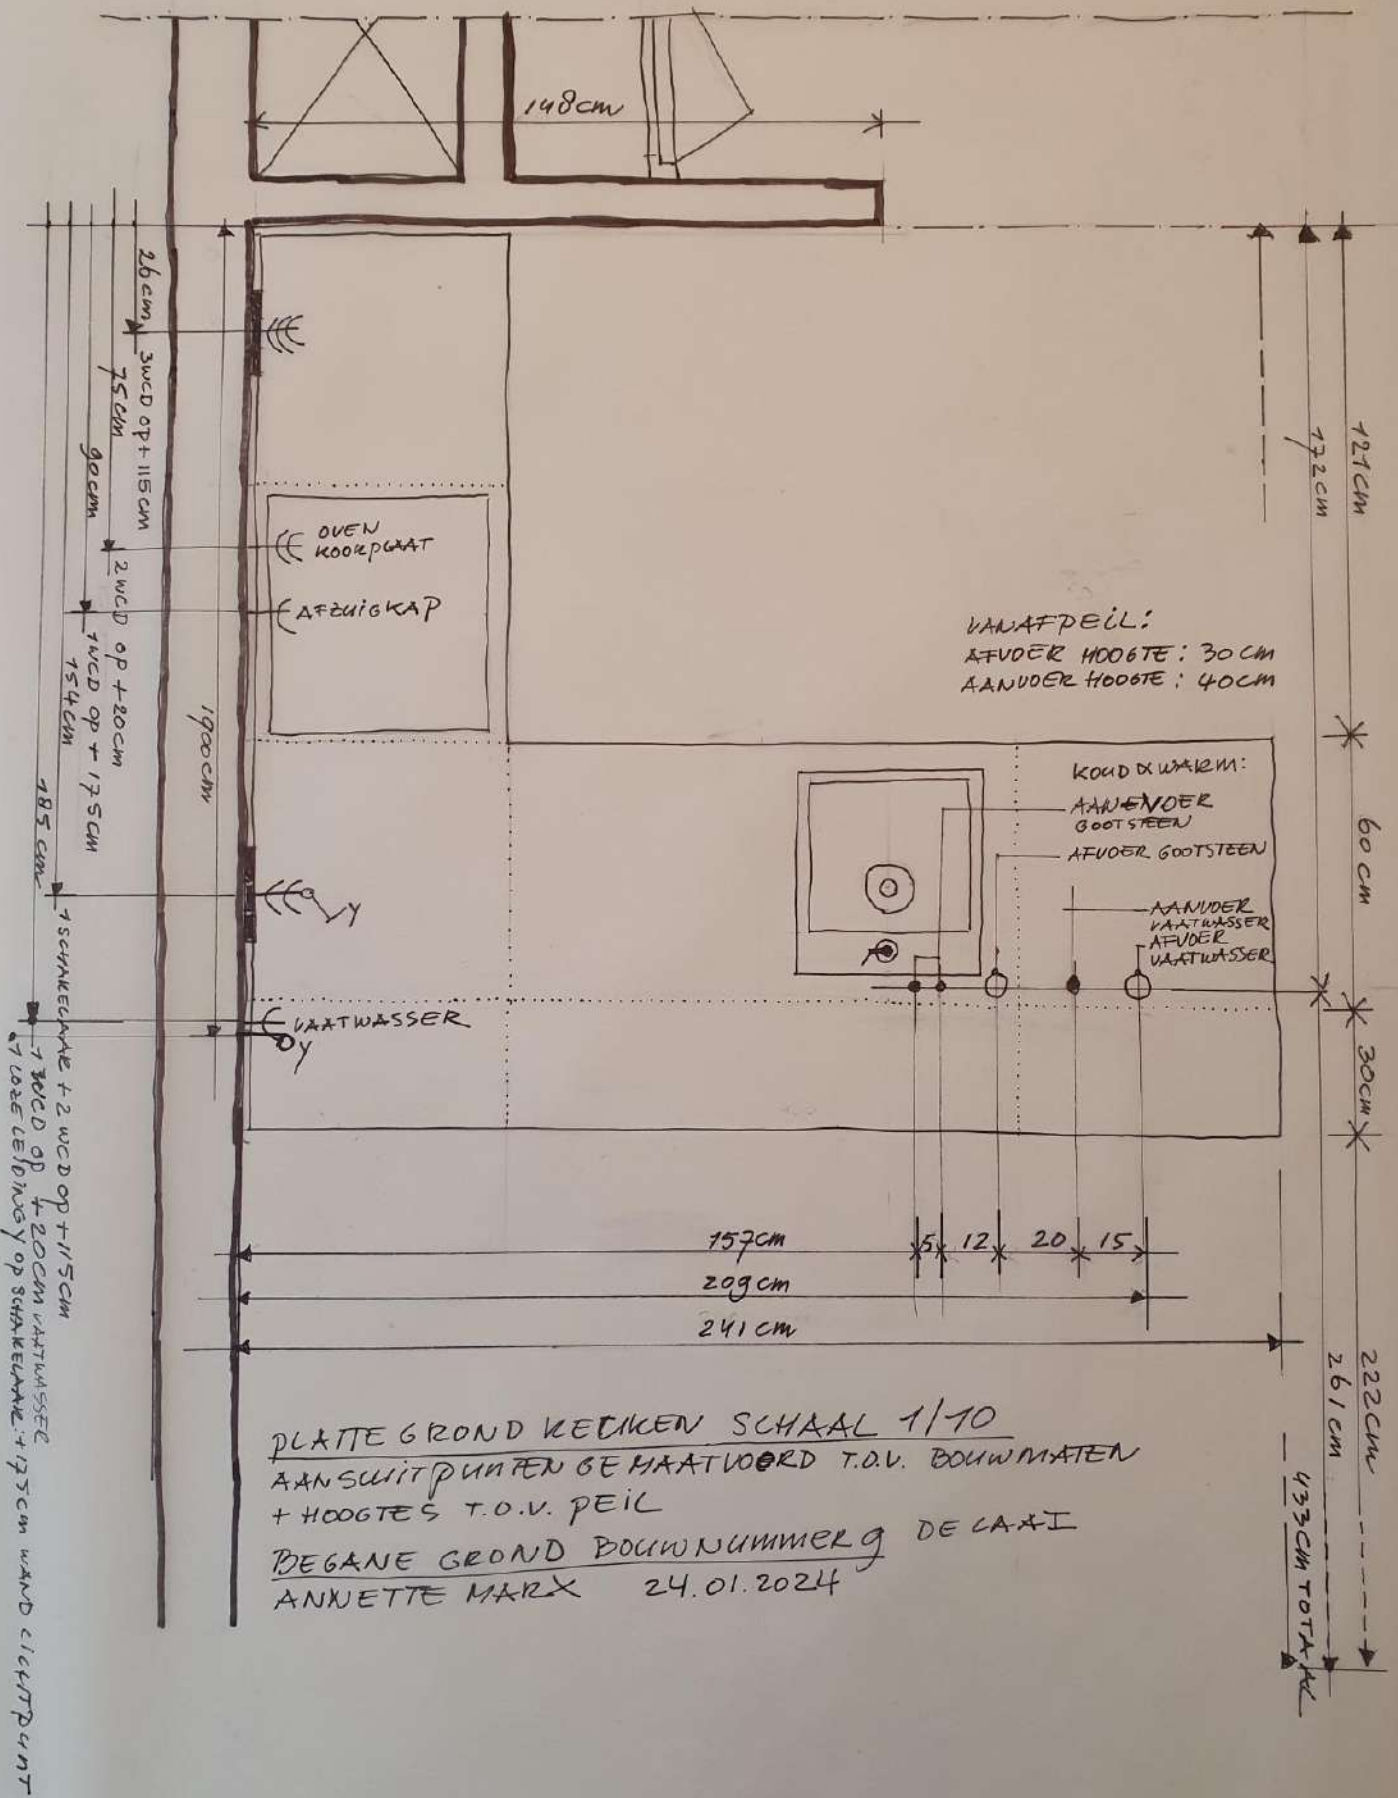 148cm
26cm
3WCD op + 115cm
75cm
2 WCD op +20cm
90cm
1WCD op + 175cm
154cm
1 SCHAKELAAR + 2 WCD op +115cm
185 cm
1 WCD op +20cm VAATWASSER
1 LOZE LEIDING Y op SCHAKELAAR: +175cm WAND LICHTPUNT
1900cm
OVEN
KOOKPLAAT
AFZUIGKAP
Y
VAATWASSER
Y
121cm
172cm
VANAF PEIL:
AFVOER HOOGTE: 30 cm
AANVOER HOOGTE: 40cm
KOUD & WARM:
AANVOER
GOOTSTEEN
AFVOER GOOTSTEEN
AANVOER
VAATWASSER
AFVOER
VAATWASSER
60 cm
30cm
157cm
5
12
20
15
209cm
241cm
222cm
261cm
433cm TOTAAL
PLATTE GROND KEUKEN SCHAAL 1/10
AANSLUITPUNTEN GEMAATVOERD T.O.V. BOUWMATEN
+ HOOGTES T.O.V. PEIL
BEGANE GROND BOUWNUMMER 9 DE LAAI
ANNETTE MARX 24.01.2024